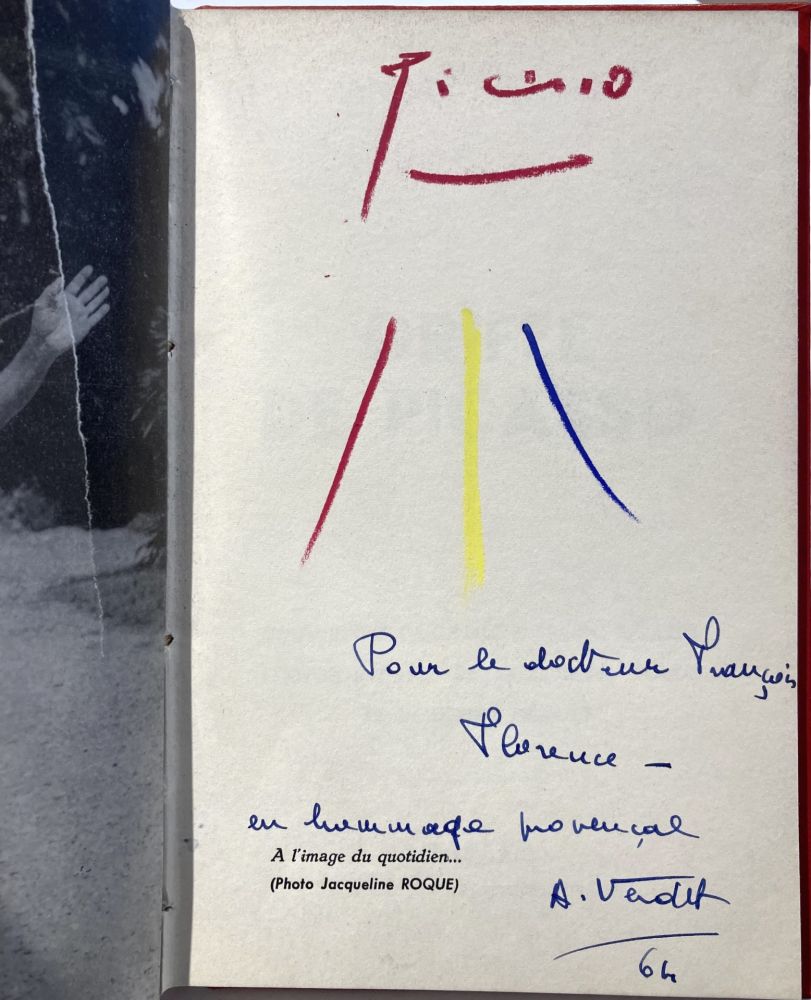 Picasso
Pour le docteur François
Florence –
en hommage provençal
A l'image du quotidien...
(Photo Jacqueline ROQUE)
A. Verdet
64